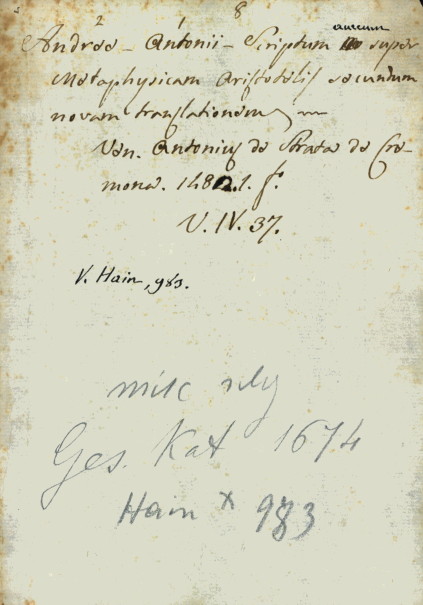 2 1 8
Andreæ - Antonii - Scriptum aureum super
Metaphysicam Aristotelis secundum
novam translationem
Ven. Antonius de Strata de Cre-
mona. 1482. 1. f.
V. IV. 37.
V. Hain, 983.
Ges. Kat 1674
Hain x 983